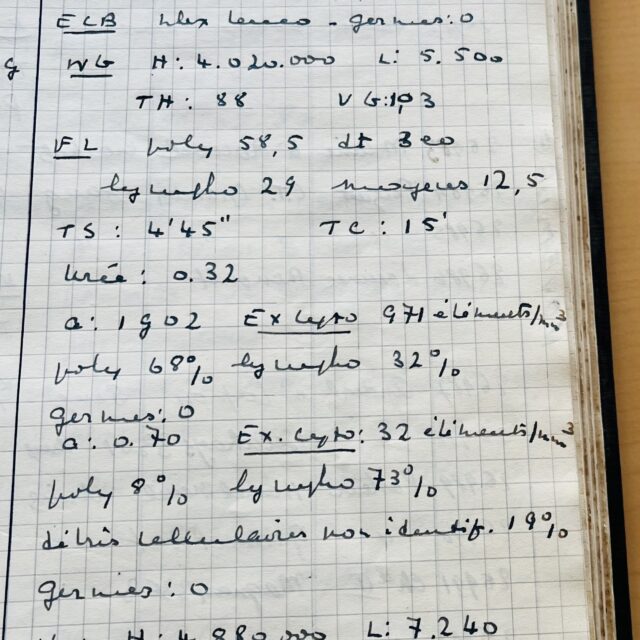 g
ECB germes: 0
NG H: 4.020.000 L: 5.500
TH: 88 VG: 1,03
FL poly 58,5 dt 3 eo
lympho 29 moyens 12,5
TS: 4'45" TC: 15'
Urée: 0.32
a: 1g02 Ex cyto 971 éléments/mm³
poly 68% lympho 32%
germes: 0
a: 0.70 Ex. cyto: 32 éléments/mm³
poly 8% lympho 73%
débris cellulaires non identif. 19%
germes: 0
H: 4.880.000 L: 7.240